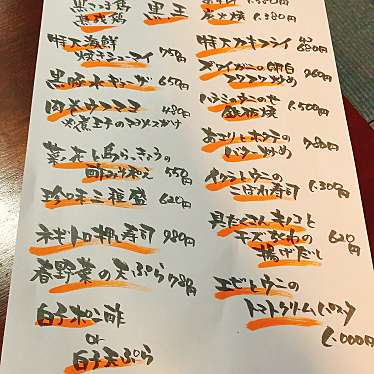 黒王
炭火焼 1,380円
特大海鮮
焼きシューマイ 750円
黒豚水ギョーザ 650円
480円
菜の花と島らっきょうの
酢みそ和え 550円
珍味三種盛 620円
ネギトロ押し寿司 980円
春野菜の天ぷら 780円
白子ポン酢
or
白子天ぷら
特大カキフライ 4コ
680円
ズワイガニの卵白
フワフワ炒め 960円
鉄板焼 1,500円
あさりとホタテの
バター炒め 780円
イクラとウニの
こぼれ寿司 1,300円
具だくさんキノコと
チーズちくわの 620円
揚げだし
エビとウニの
トマトクリームパスタ
1,000円